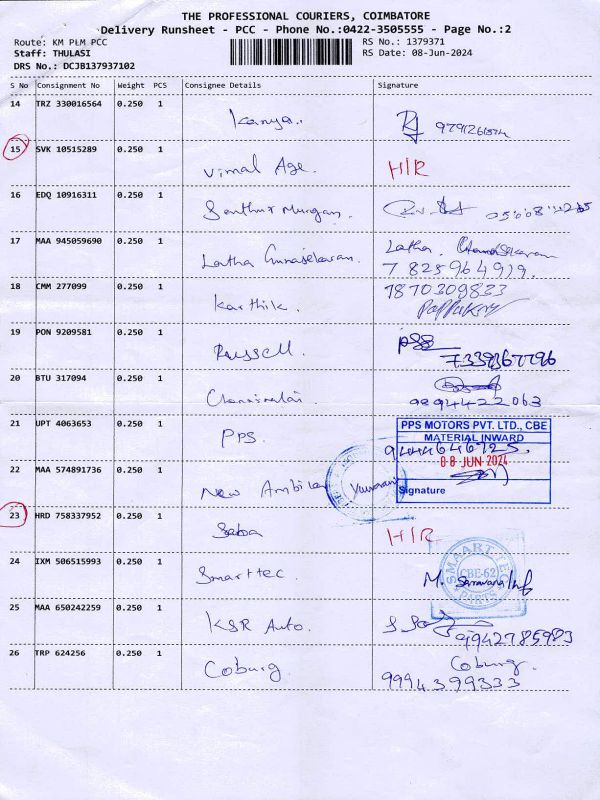 THE PROFESSIONAL COURIERS, COIMBATORE
Delivery Runsheet - PCC - Phone No.:0422-3505555 - Page No.:2
Route: KM PLM PCC
Staff: THULASI
DRS No.: DCJB137937102
RS No.: 1379371
RS Date: 08-Jun-2024
S No Consignment No Weight PCS Consignee Details Signature
14 TRZ 330016564 0.250 1 Kanya.
15 SVK 10515289 0.250 1 Vimal Age. H/R
16 EDQ 10916311 0.250 1 Senthur Murugan.
17 MAA 945059690 0.250 1 Latha Gunaselaran. Latha.
7825964919.
18 CMM 277099 0.250 1 Karthik. 7870309833
19 PON 9209581 0.250 1 Russell. PSS
7339367796
20 BTU 317094 0.250 1
9894422063
21 UPT 4063653 0.250 1 PPS.
PPS MOTORS PVT. LTD., CBE
MATERIAL INWARD
9444646725.
08 JUN 2024
Signature
22 MAA 574891736 0.250 1 New Ambika
23 HRD 758337952 0.250 1 Saba H/R
24 IXM 506515993 0.250 1 Smarttec. M.
SMAART TEC
CBE-62
PARTS
25 MAA 650242259 0.250 1 KSR Auto.
9942785983
26 TRP 624256 0.250 1 Coburg. Coburg.
9994399333